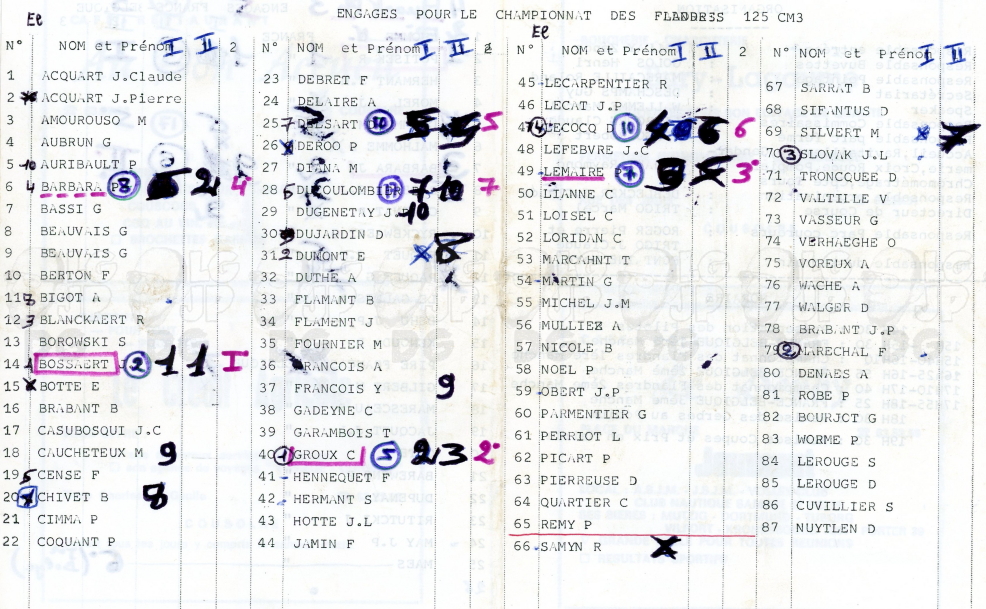 ENGAGES POUR LE CHAMPIONNAT DES FLANDRES 125 CM3
El
N° NOM et Prénom I II 2
1 ACQUART J.Claude
2 ACQUART J.Pierre
3 AMOUROUSO M
4 AUBRUN G
5 10 AURIBAULT P
6 4 BARBARA P 8 2 4
7 BASSI G
8 BEAUVAIS G
9 BEAUVAIS G
10 BERTON F
11 BIGOT A
12 3 BLANCKAERT R
13 BOROWSKI S
14 1 BOSSAERT J 2 1 1 I
15 BOTTE E
16 BRABANT B
17 CASUBOSQUI J.C
18 CAUCHETEUX M 9
19 5 CENSE F
20 CHIVET B 8
21 CIMMA P
22 COQUANT P
N° NOM et Prénom I II 2
23 DEBRET F
24 DELAIRE A
25 7 DELSART 5
26 DEROO P
27 DIANA M
28 5 DUCOULOMBIER 7 10 7
29 DUGENETAY J.P 10
30 DUJARDIN D
31 2 DUMONT E X 8
32 DUTHE A
33 FLAMANT B
34 FLAMENT J
35 FOURNIER M
36 FRANCOIS A
37 FRANCOIS Y 9
38 GADEYNE C
39 GARAMBOIS T
40 1 GROUX C 5 2 3 2
41 HENNEQUET F
42 HERMANT S
43 HOTTE J.L
44 JAMIN F
El
N° NOM et Prénom I II 2
45 LECARPENTIER R
46 LECAT J.P
47 4 LECOCQ D 10 6 6
48 LEFEBVRE J.C
49 LEMAIRE P 7 3 3
50 LIANNE C
51 LOISEL C
52 LORIDAN C
53 MARCAHNT T
54 MARTIN G
55 MICHEL J.M
56 MULLIEZ A
57 NICOLE B
58 NOEL P
59 OBERT J.P
60 PARMENTIER G
61 PERRIOT L
62 PICART P
63 PIERREUSE D
64 QUARTIER C
65 REMY P
66 SAMYN R X
N° NOM et Prénom I II
67 SARRAT B
68 SIFANTUS D
69 SILVERT M X 7
70 3 SLOVAK J.L
71 TRONCQUEE D
72 VALTILLE Y
73 VASSEUR G
74 VERHAEGHE O
75 VOREUX A
76 WACHE A
77 WALGER D
78 BRABANT J.P
79 2 MARECHAL F
80 DENAES A
81 ROBE P
82 BOURJOT G
83 WORME P
84 LEROUGE S
85 LEROUGE D
86 CUVILLIER S
87 NUYTLEN D